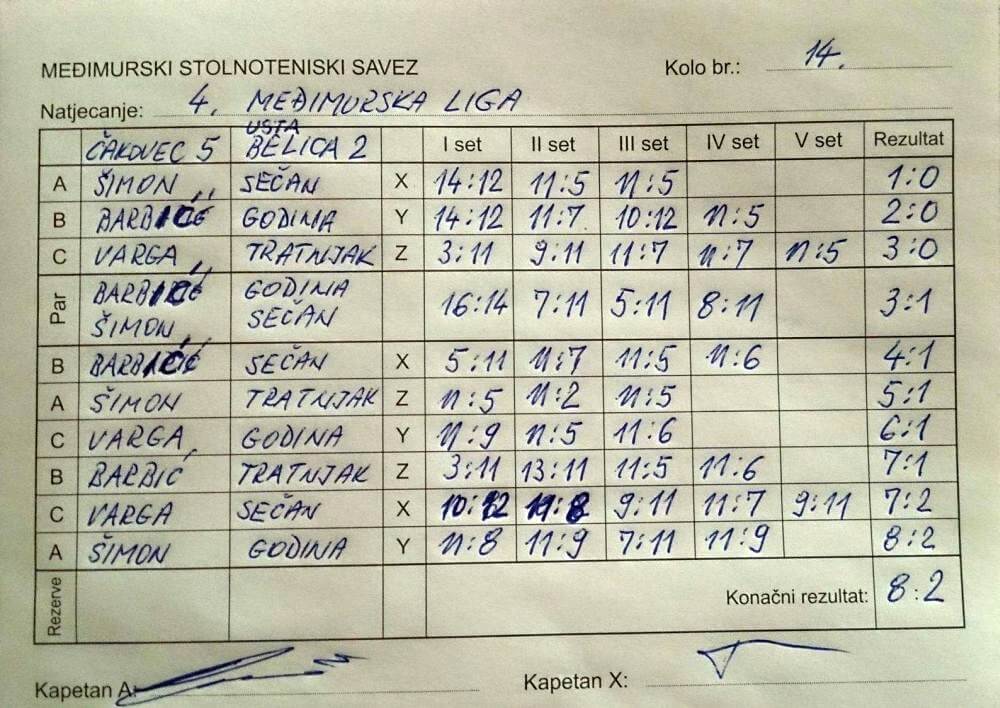 MEĐIMURSKI STOLNOTENISKI SAVEZ Kolo br.: 14.
Natjecanje: 4. MEĐIMURSKA LIGA
USTA
ČAKOVEC 5 BELICA 2 I set II set III set IV set V set Rezultat
A ŠIMON SEČAN X 14:12 11:5 11:5 1:0
B BARBIĆ GODINA Y 14:12 11:7 10:12 11:5 2:0
C VARGA TRATNJAK Z 3:11 9:11 11:7 11:7 11:5 3:0
Par BARBIĆ GODINA 16:14 7:11 5:11 8:11 3:1
ŠIMON SEČAN
B BARBIĆ SEČAN X 5:11 11:7 11:5 11:6 4:1
A ŠIMON TRATNJAK Z 11:5 11:2 11:5 5:1
C VARGA GODINA Y 11:9 11:5 11:6 6:1
B BARBIĆ TRATNJAK Z 3:11 13:11 11:5 11:6 7:1
C VARGA SEČAN X 10:12 11:8 9:11 11:7 9:11 7:2
A ŠIMON GODINA Y 11:8 11:9 7:11 11:9 8:2
Rezerve Konačni rezultat: 8:2
Kapetan A: Kapetan X: